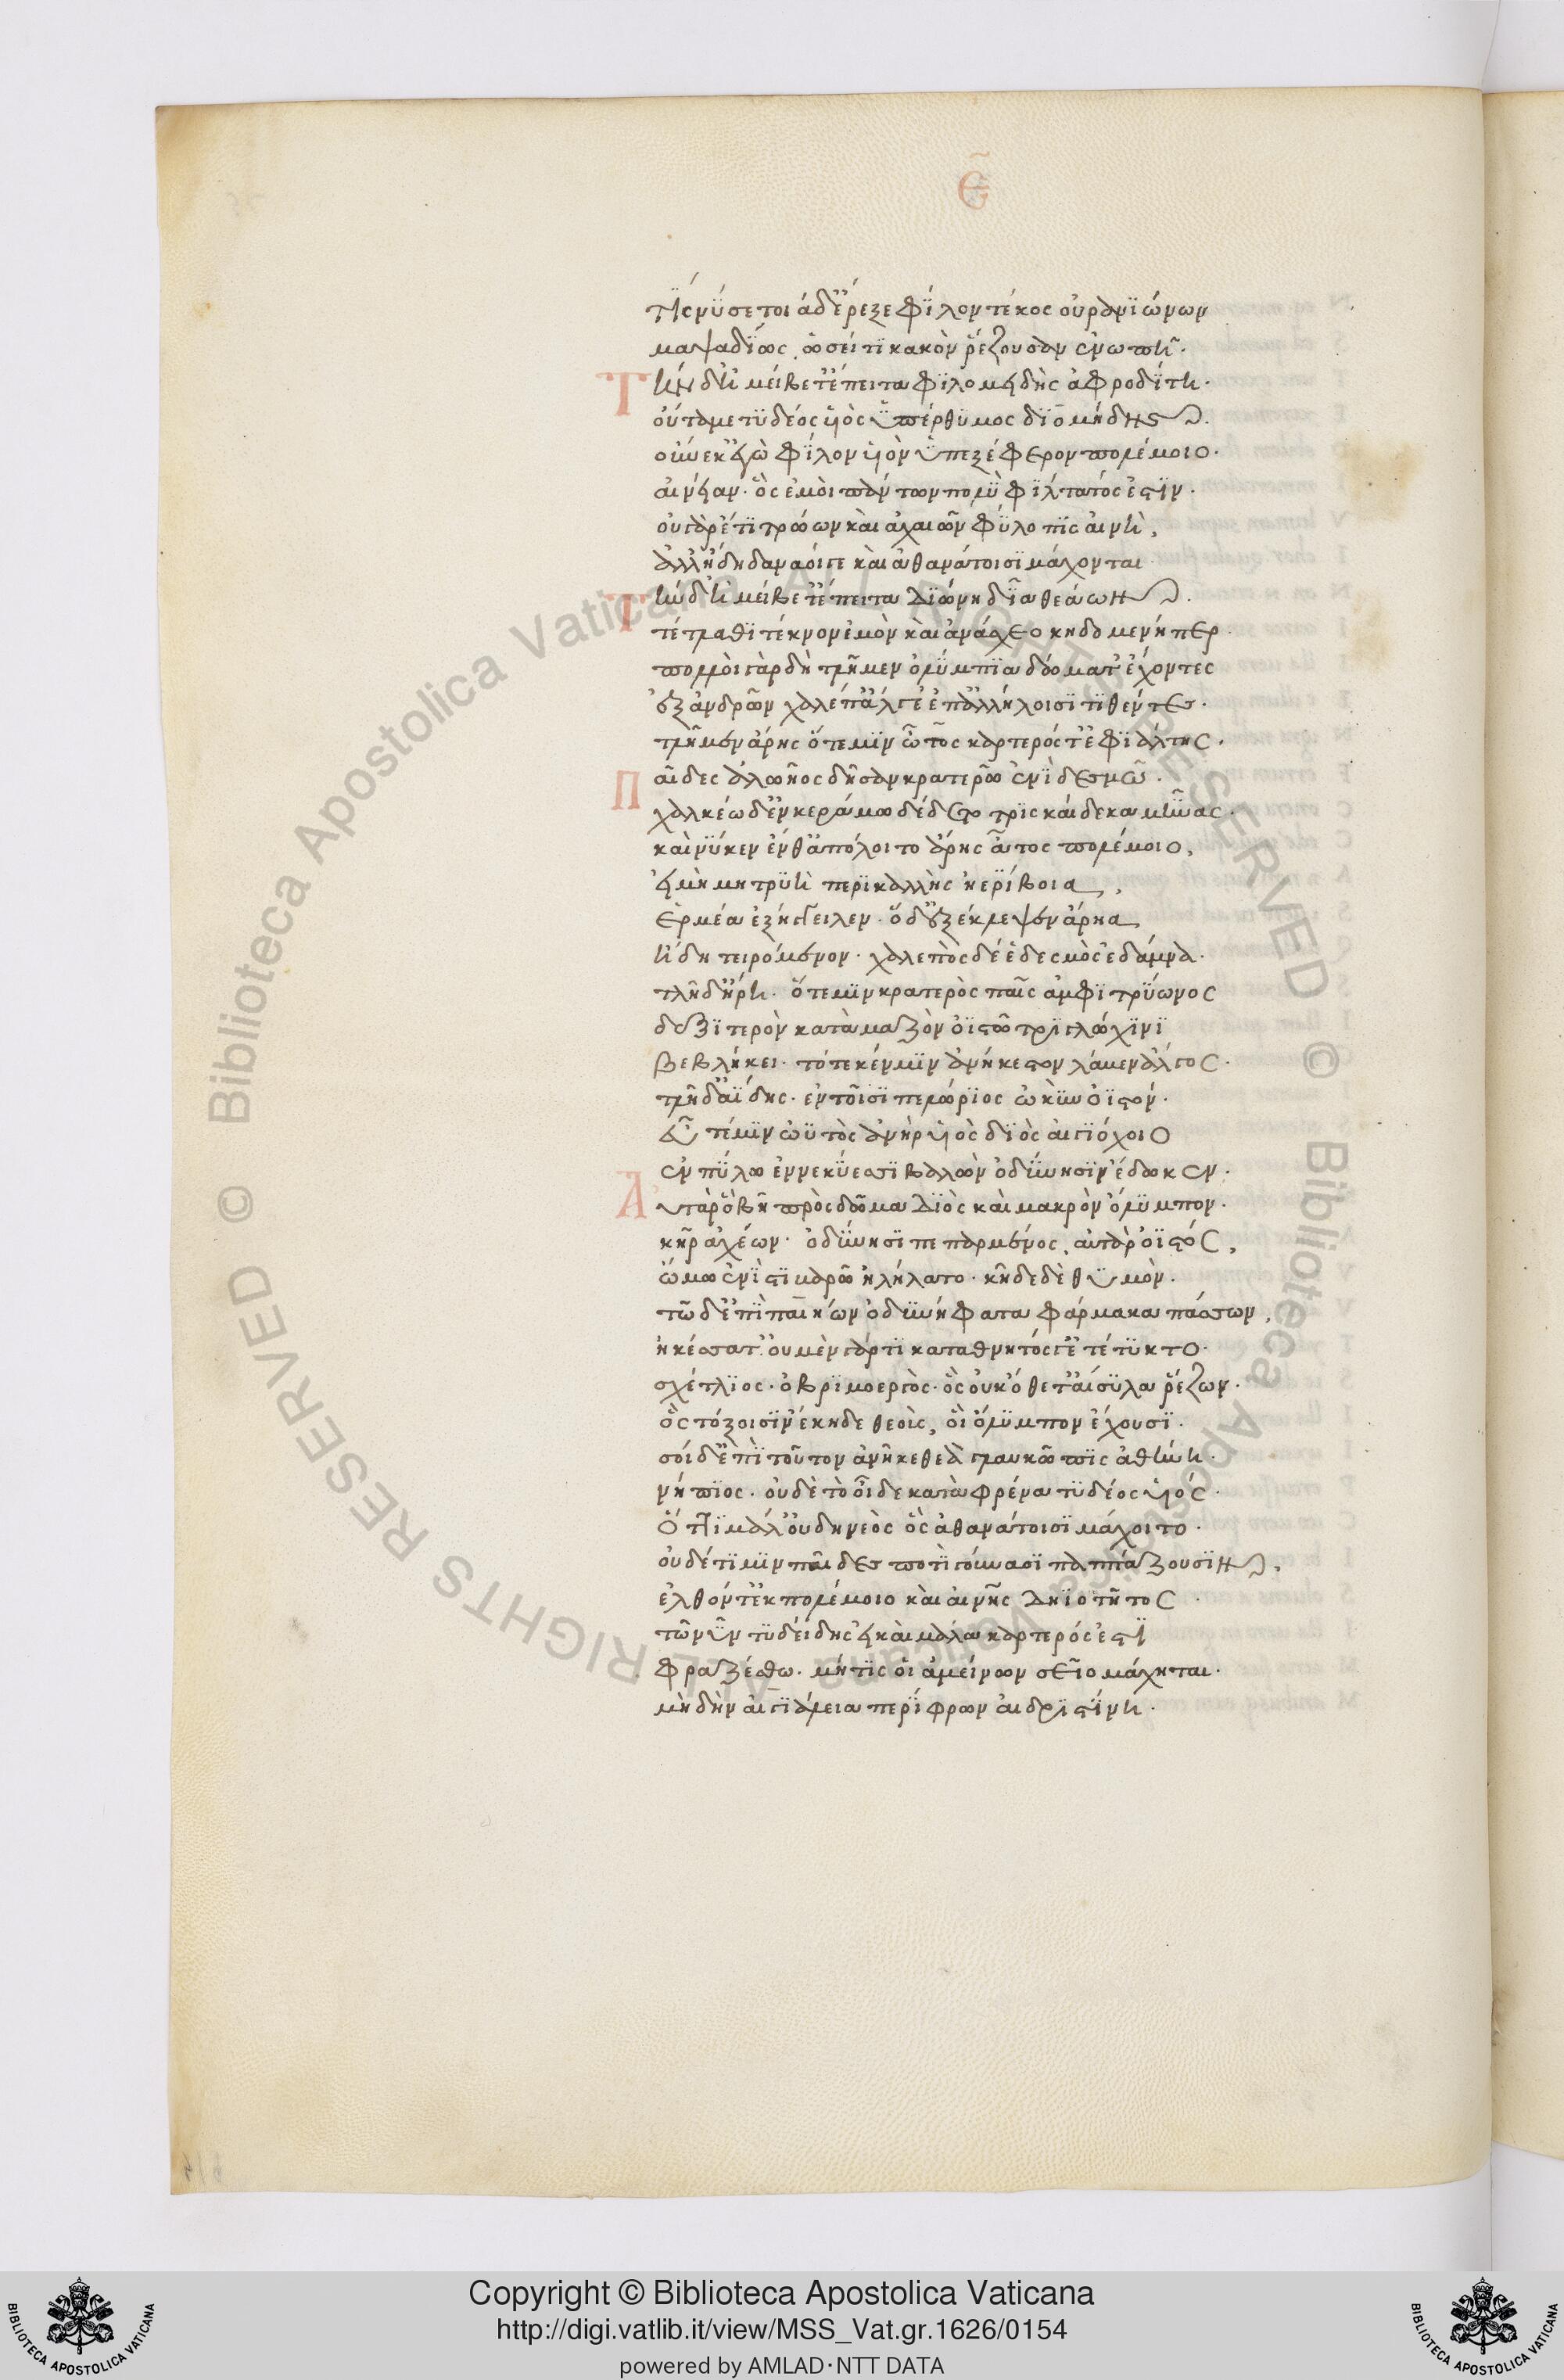 Ε
τίς νύ σε τοιάδ' ἔρεξε φίλον τέκος οὐρανιώνων
μαψιδίως, ὡσεί τι κακὸν ῥέζουσαν ἐνωπῆ.
Τὴν δ' ἠμείβετ' ἔπειτα φιλομηδὴς ἀφροδίτη.
οὖταμε τυδέος υἱὸς ὑπέρθυμος διομήδης.
οὕνεκ' ἐγὼ φίλον υἱὸν ὑπεξέφερον πολέμοιο.
αἰνείαν. ὃς ἐμοὶ πάντων πολὺ φίλτατός ἐστιν.
οὐ γὰρ ἔτι τρώων καὶ ἀχαιῶν φύλοπις αἰνὴ,
ἀλλ' ἤδη δαναοί γε καὶ ἀθανάτοισι μάχονται
Τὴν δ' ἠμείβετ' ἔπειτα διώνη δῖα θεάων.
τέτλαθι τέκνον ἐμὸν καὶ ἀνάσχεο κηδομένη περ.
πολλοὶ γὰρ δὴ τλῆμεν ὀλύμπια δώματ' ἔχοντες
ἐξ ἀνδρῶν χαλέπ' ἄλγε' ἐπ' ἀλλήλοισι τιθέντες.
τλῆ μὲν ἄρης ὅτε μιν ὦτος καρτερός τ' ἐφιάλτης.
Παῖδες ἀλωῆος δῆσαν κρατερῶ ἐνὶ δεσμῶ.
χαλκέω δ' ἐν κεράμω δέδετο τρὶς καίδεκα μῆνας.
καὶ νύ κεν ἔνθ' ἀπόλοιτο ἄρης ἆτος πολέμοιο,
εἰ μὴ μητρυὴ περικαλλὴς ἠερίβοια,
ἑρμέα ἐξήγγειλεν. ὃ δ' ἐξέκλεψεν ἄρηα
ἤδη τειρόμενον. χαλεπὸς δέ ἑ δεσμὸς ἐδάμνα.
τλῆ δ' ἥρη. ὅτε μιν κρατερὸς παῖς ἀμφιτρύωνος
δεξιτερὸν κατὰ μαζὸν ὀϊστῶ τριγλώχινι
βεβλήκει. τότε κέν μιν ἀνήκεστον λάμεν ἄλγος.
τλῆ δ' ἀΐδης. ἐν τοῖσι πελώριος ὠκὺν ὀϊστόν.
εὖτέ μιν ωὑτὸς ἀνὴρ υἱὸς διὸς αἰγιόχοιο
ἐν πύλω ἐν νεκύεσσι βαλὼν ὀδύνησιν ἔδωκεν.
Αὐτὰρ ὃ βῆ πρὸς δῶμα διὸς καὶ μακρὸν ὄλυμπον.
κῆρ ἀχέων. ὀδύνησι πεπαρμένος, αὐτὰρ ὀϊστός,
ὤμω ἐνὶ στιβαρῶ ἠλήλατο. κῆδε δὲ θυμὸν.
τῶ δ' ἐπὶ παιήων ὀδυνήφατα φάρμακα πάσσων,
ἠκέσατ'. οὐ μὲν γάρ τι καταθνητός γε τέτυκτο.
σχέτλιος. ὀβριμοεργὸς. ὃς οὐκ ὄθετ' αἴσυλα ῥέζων.
ὃς τόξοισιν ἔκηδε θεοὶς, οἳ ὄλυμπον ἔχουσι.
σοὶ δ' ἐπὶ τοῦτον ἀνῆκε θεὰ γλαυκῶπις ἀθήνη.
νήπιος. οὐδὲ τὸ οἶδε κατὰ φρένα τυδέος υἱός.
ὅττι μάλ' οὐ δηναιὸς ὃς ἀθανάτοισι μάχοιτο.
οὐδέ τι μιν παῖδες ποτὶ γούνασι παππάζουσιν,
ἐλθόντ' ἐκ πολέμοιο καὶ αἰνῆς δηιοτῆτος.
τῶ νῦν τυδείδης εἰ καὶ μάλα καρτερός ἐστι
φραζέσθω. μή τίς οἱ ἀμείνων σεῖο μάχηται.
μὴ δὴν αἰγιάλεια περίφρων ἀδρηστίνη.
Copyright © Biblioteca Apostolica Vaticana
http://digi.vatlib.it/view/MSS_Vat.gr.1626/0154
powered by AMLAD·NTT DATA